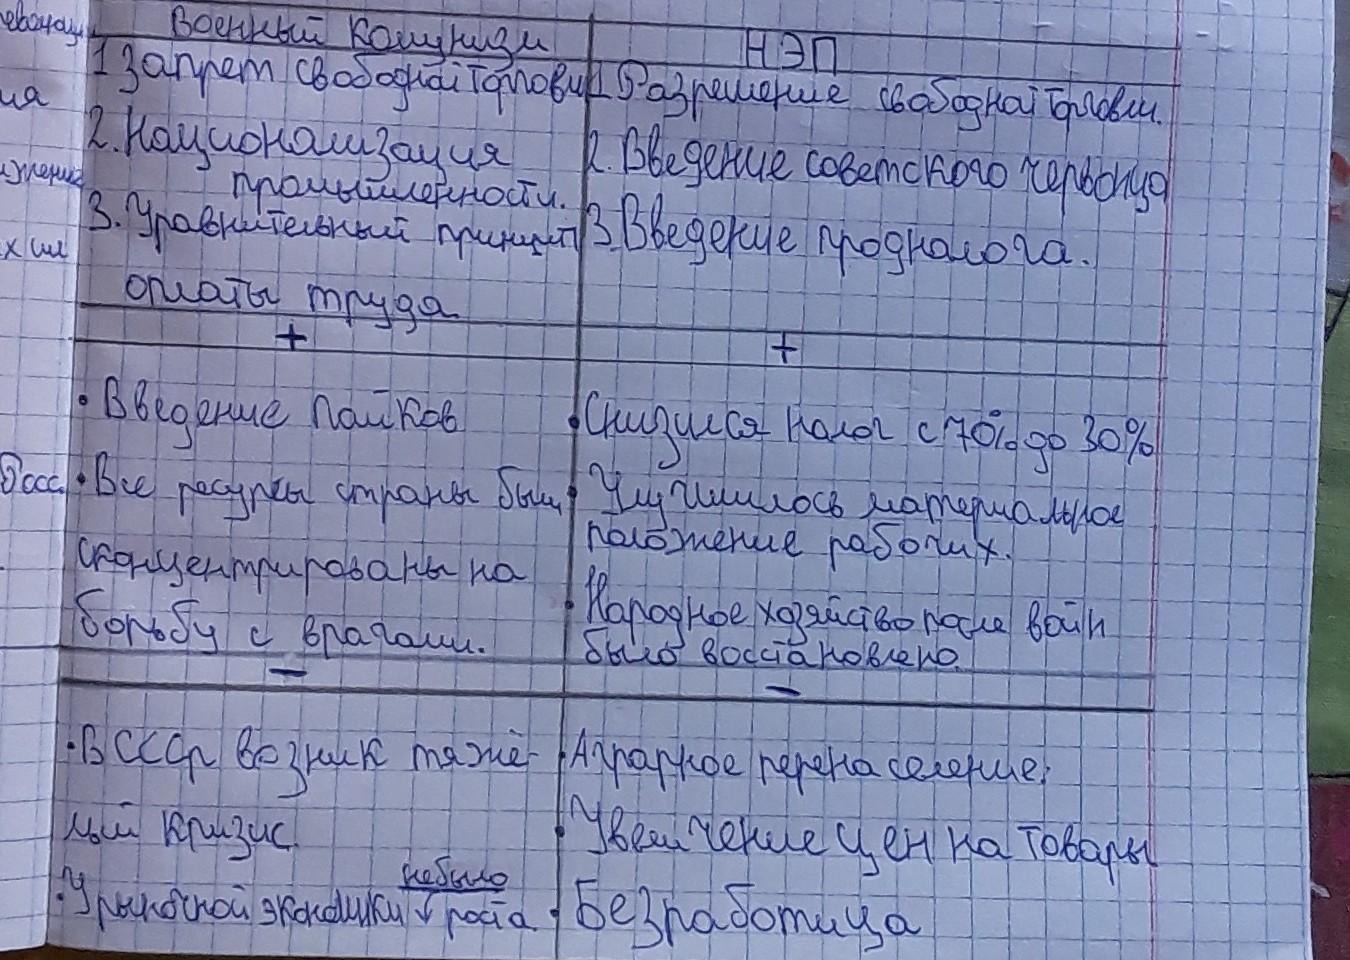 Военный комунизм
1 Запрет свободной торговли
2. Национализация
промышленности.
3. Уравнительный принцип
оплаты труда
+
• Введение пайков
• Все ресурсы страны были
сконцентрированы на
борьбу с врагами.
–
• В СССР возник тяжё-
лый кризис
не было
• У рыночной экономики ↓ роста
НЭП
1. Разрешение свободной торговли.
2. Введение советского червонца
3. Введение продналога.
+
• Снизился налог с 70% до 30%
• Улучшилось материальное
положение рабочих.
• Народное хозяйство после войн
было восстановлено.
–
• Аграрное перенаселение;
• Увеличение цен на товары
• Безработица